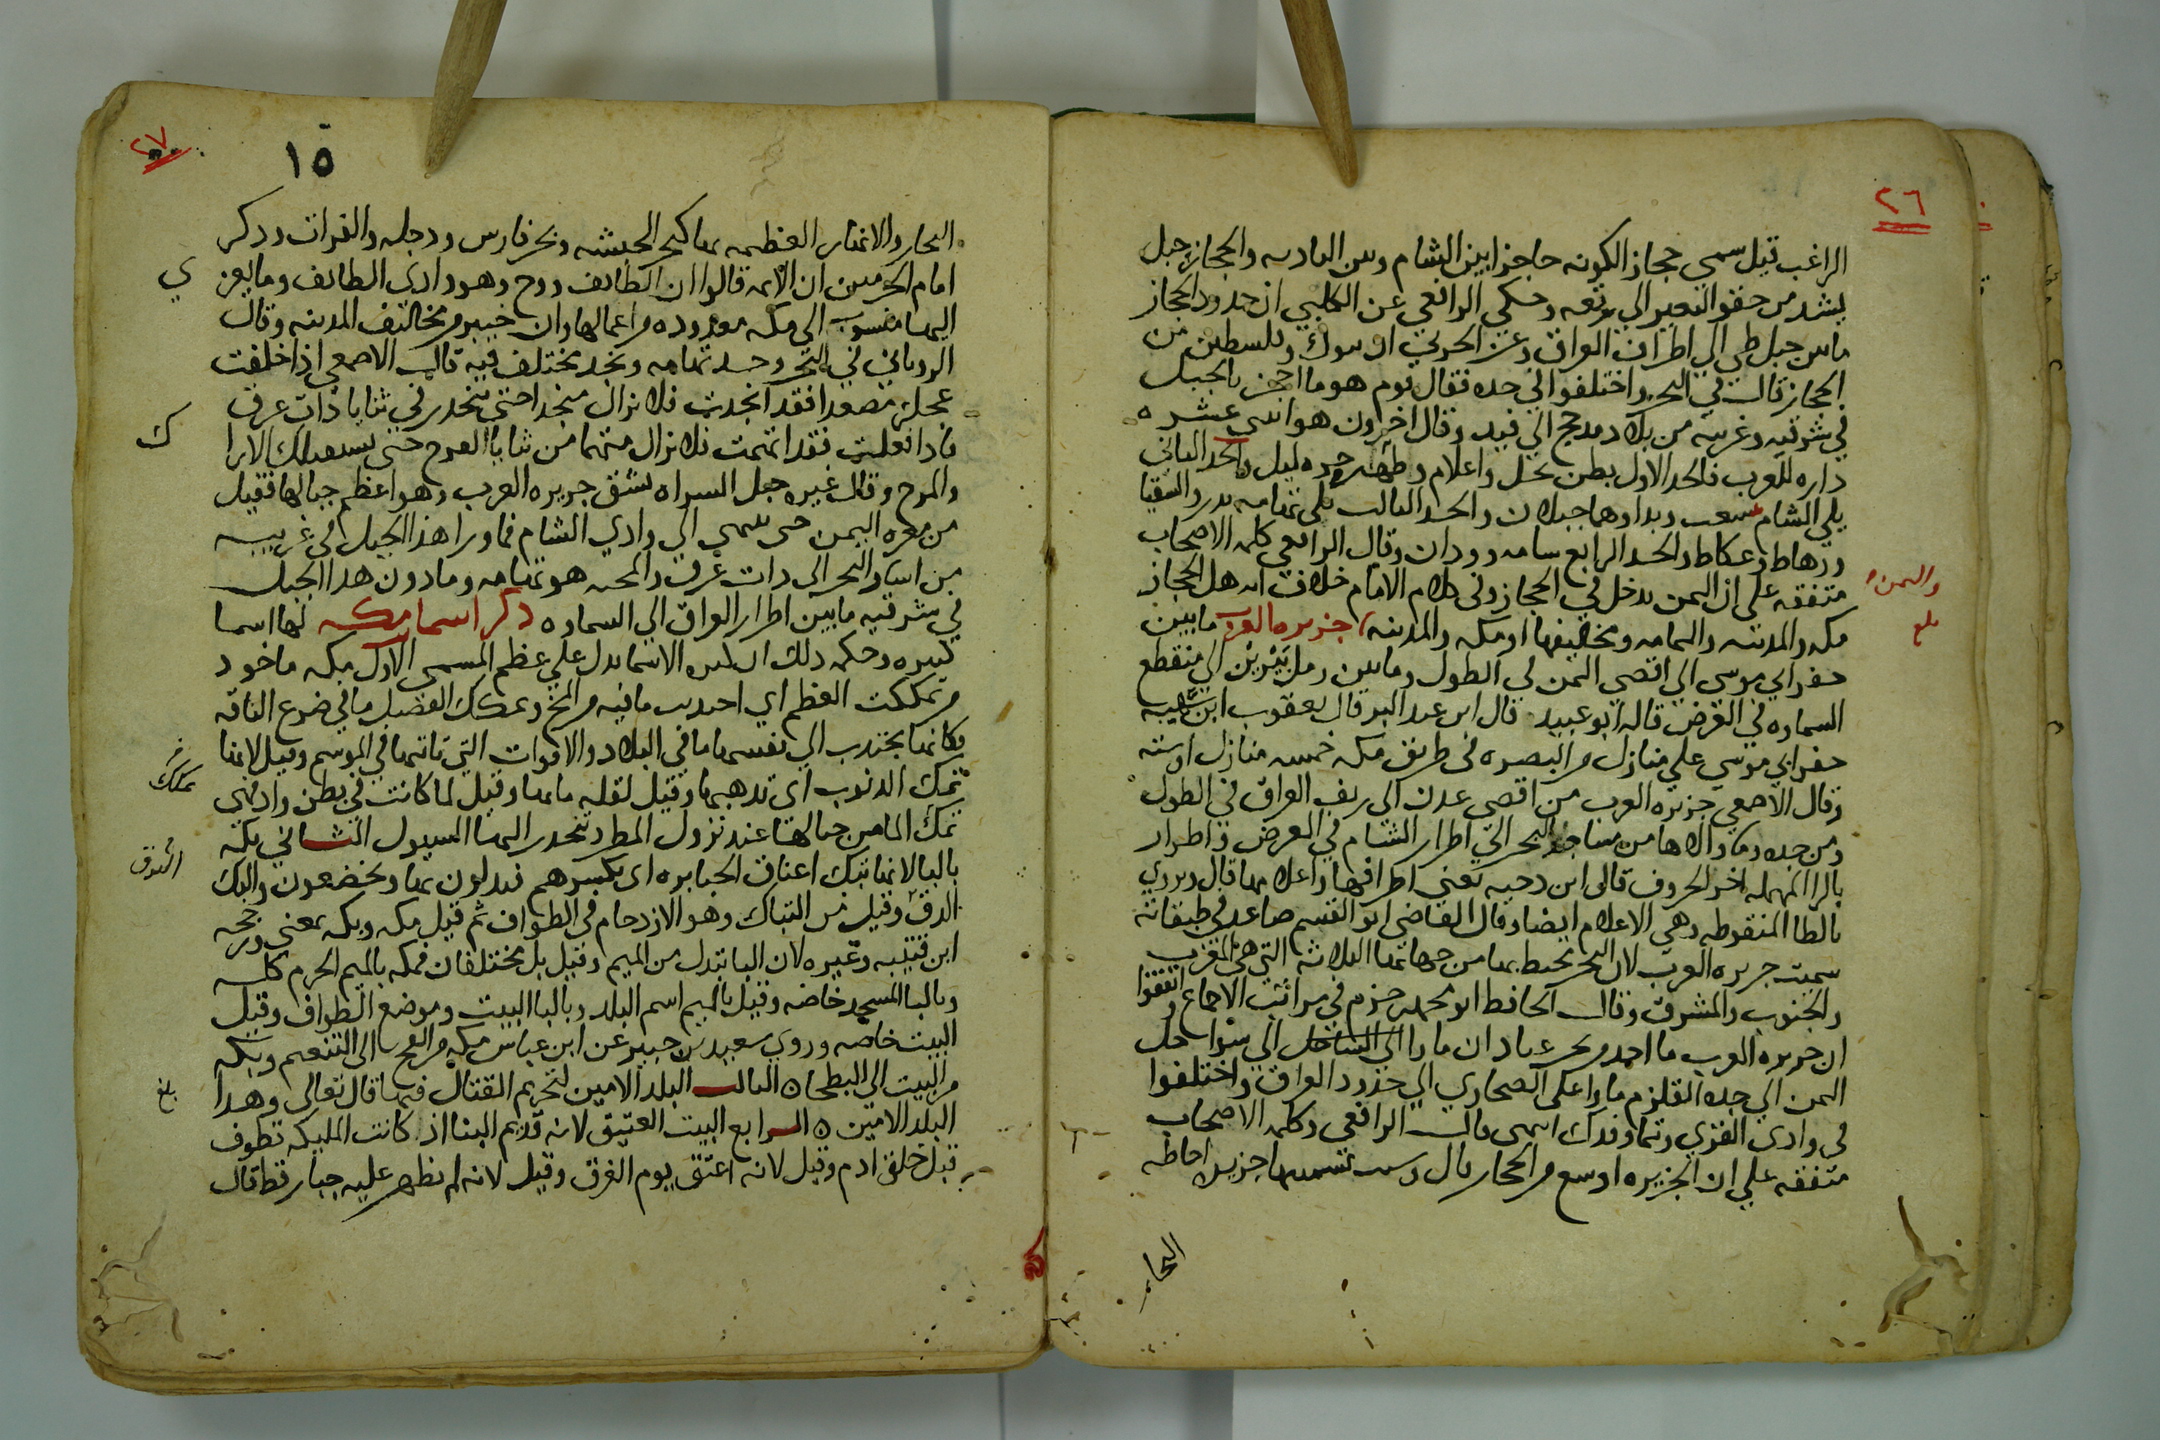 ٢٦
الراغب قيل سمي حجاز الكونه حاجزا بين الشام وبين الباديه والحجاز حبل
يشد من حقو البعير الي رسغه وحكي الرافعي عن الكلبي ان حدود الحجاز
مابين جبل طي الي اطراف العراق وعن الحربي ان تبوك وفلسطين من
الحجاز قال في البحر واختلفوا في حده فقال قوم هو ما احتجز بالجبل
في شرقيه وغربيه من بلاد مدحج الي فيد وقال اخرون هو اثني عشره
داره للعرب فالحد الاول بطن نخل واعلام وظهر حره ليلى والحد الثاني
يلي الشام شعب وبدا وهما جبلان والحد الثالث يلي تهامه بدر والسقيا
ورهاط وعكاظ والحد الرابع سايه وودان وقال الرافعي كلمه الاصحاب
متفقه علي ان اليمن يدخل في الحجاز وفي كلام الامام خلاف انه هل الحجاز
واليمن
مكه والمدينه واليمامه ومخاليفها او مكه والمدينه جزيره العرب مابين
بلغ
حفر ابي موسي الي اقصي اليمن في الطول ومابين رمل يبرين الي منقطع
السماوه في العرض قاله ابو عبيد قال ابن عبد البر قال يعقوب ابن شيبه
حفر ابي موسي علي منازل من البصره في طريق مكه خمسه منازل او سته
وقال الاصمعي جزيره العرب من اقصي عدن الي ريف العراق في الطول
ومن جده وما والاها من ساحل البحر الي اطرار الشام في العرض واطرار
بالرا المهمله اخر الحروف قال ابن دحيه يعني اطرافها واعلامها قال ويروي
بالظا المنقوطه وهي الاعلام ايضا وقال القاضي ابو القسم صاعد في طبقاته
سميت جزيره العرب لان البحر يحيط بها من جهاتها الثلاثه التي هي المغرب
والجنوب والمشرق وقال الحافظ ابو محمد بن حزم في مراتب الاجماع واتفقوا
ان جزيره العرب ما اخد من بحر عبادان مارا الي الساحل الي سواحل
اليمن الي جده القلزم مارا علي الصحاري الي حدود العراق واختلفوا
في وادي القري وتيما وفدك انتهى قال الرافعي وكلمه الاصحاب
متفقه علي ان الجزيره اوسع من الحجاز قال وسبب تسميتها جزيره احاطه
البحار
٢٧
١٥
البحار والانهار العظيمه بها كبحر الحبشه وبحر فارس ودجله والفرات وذكر
امام الحرمين ان الائمه قالوا ان الطايف ووج وهو وادي الطايف وما يعزي
اليها منسوب الي مكه معدوده من اعمالها وان خيبر من مخاليف المدينه وقال
الروياني في البحر وحد تهامه ونجد مختلف فيه قال الاصمعي اذا خلفت
عجلز مصعدا فقد انجدت فلا تزال منجدا حتي تنحدر في ثنايا ذات عرق
فاذا فعلت فقد اتهمت فلا تزال متهما من ثنايا العرج حتي يستقبلك الاراك
والمرخ وقال غيره جبل السراه يشق جزيره العرب وهو اعظم جبالها فقيل
من معره اليمن حتي ينتهي الي وادي الشام فما ورا هذا الجبل في غربيه
من اسياف البحر الي ذات عرق والجحفه هو تهامه ومادون هذا الجبل
في شرقيه مابين اطرار العراق الي السماوه ذكر اسما مكه لها اسما
كثيره وحكمه ذلك ان كثره الاسما يدل علي عظم المسمي الاول مكه ماخوذ
من تمككت العظم اي اجتذبت مافيه من المخ وتمكك الفصيل مافي ضرع الناقه
فكانها تجتذب الي نفسها مافي البلاد والاقوات التي تاتيها في الموسم وقيل لانها
تمك الذنوب اي تذهبها وقيل لقله مايها وقيل لما كانت في بطن واد فهي
تمكك
تمك الما من جبالها عند نزول المطر وتنحدر اليها السيول الثاني بكه
بالبا لانها تبك اعناق الجبابره اي تكسرهم فيذلون بها ويخضعون والبك
الدق وقيل من التباك وهو الازدحام في الطواف ثم قيل مكه وبكه بمعني ورجحه
ابن قتيبه وغيره لان البا تبدل من الميم وقيل بل مختلفان فمكه بالميم الحرم كله
وبالبا المسجد خاصه وقيل بالميم اسم البلد وبالبا البيت وموضع الطواف وقيل
البيت خاصه وروي سعيد بن جبير عن ابن عباس مكه من الفج الي التنعيم وبكه
من البيت الي البطحاه الثالث البلد الامين لتحريم القتال فيها قال تعالى وهذا
بلغ
البلد الامين ه الرابع البيت العتيق لانه قديم البنا اذ كانت المليكه تطوف
قبل خلق ادم وقيل لانه اعتق يوم الغرق وقيل لانه لم يظهر عليه جبار قط قال